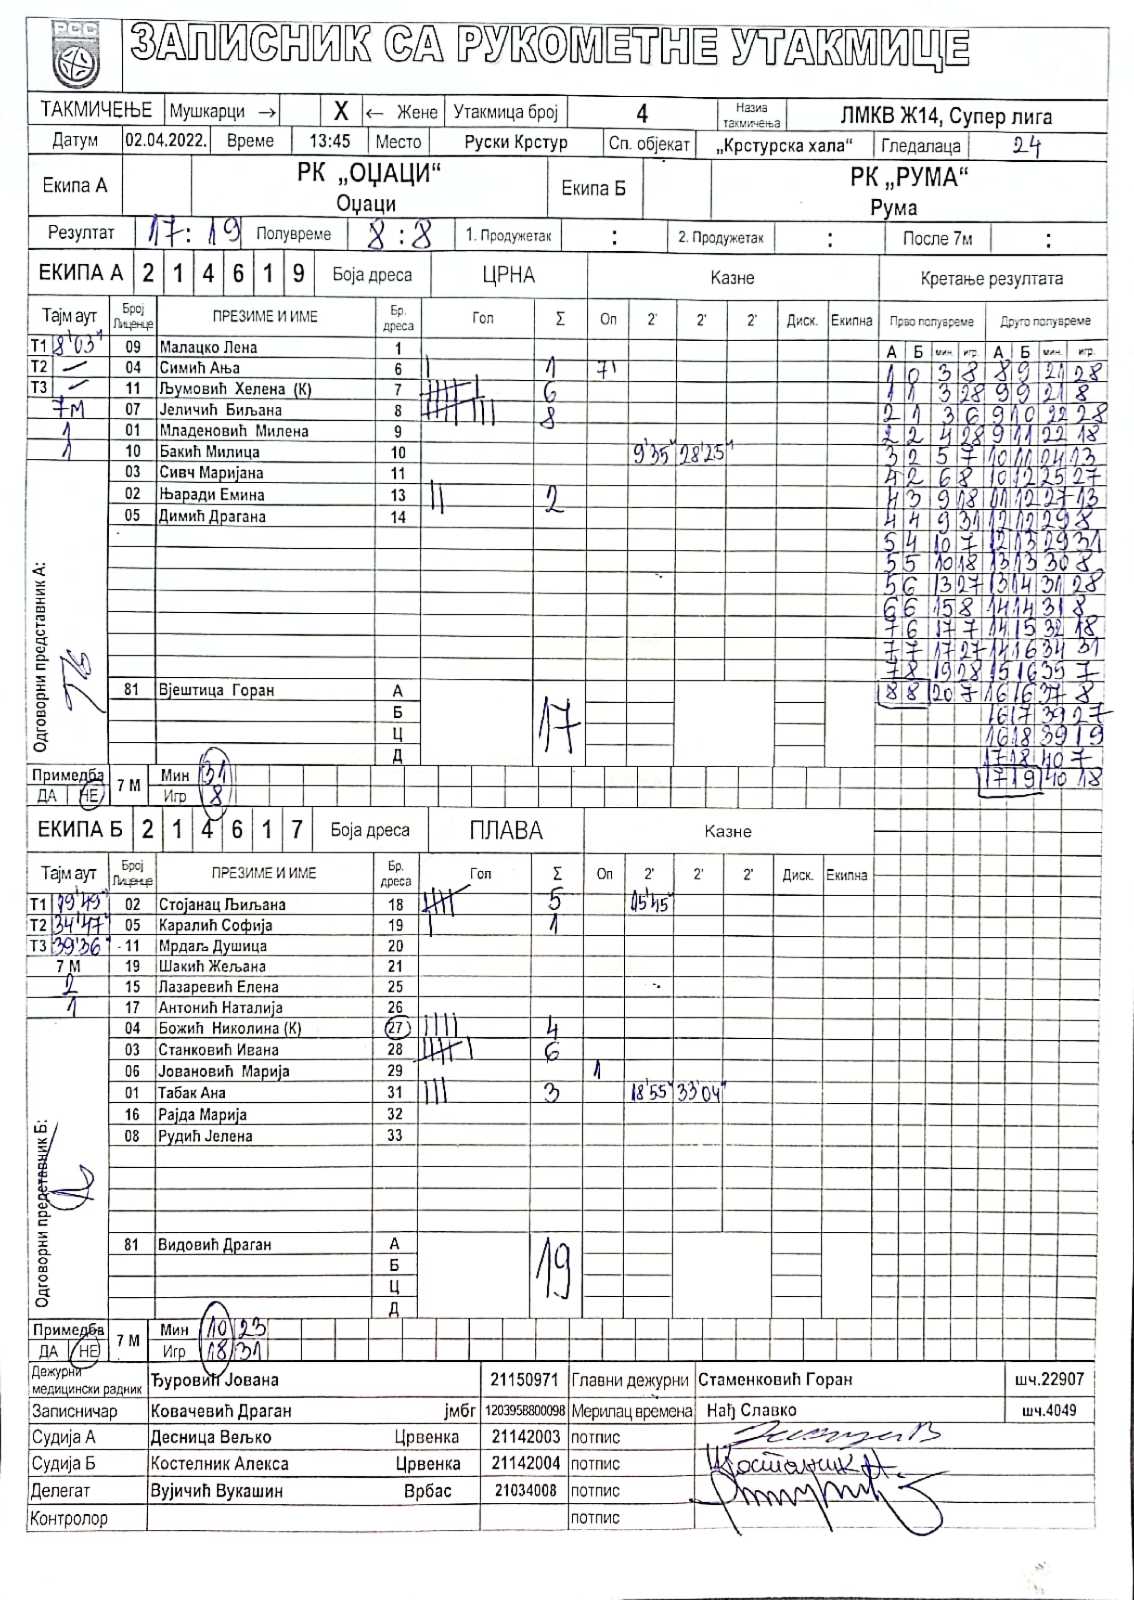 РСС
ЗАПИСНИК СА РУКОМЕТНЕ УТАКМИЦЕ
ТАКМИЧЕЊЕ Мушкарци → X ← Жене Утакмица број 4 Назив такмичења ЛМКВ Ж14, Супер лига
Датум 02.04.2022. Време 13:45 Место Руски Крстур Сп. објекат „Крстурска хала“ Гледалаца 24
Екипа А РК „ОЏАЦИ“ Оџаци Екипа Б РК „РУМА“ Рума
Резултат 17:19 Полувреме 8:8 1. Продужетак : 2. Продужетак : После 7м :
ЕКИПА А 2 1 4 6 1 9 Боја дреса ЦРНА Казне Кретање резултата
Тајм аут Број Лиценце ПРЕЗИМЕ И ИМЕ Бр. дреса Гол Σ Оп 2' 2' 2' Диск. Екипна Прво полувреме Друго полувреме
А Б мин. игр. А Б мин. игр.
Т1 8'03" 09 Малацко Лена 1
Т2 – 04 Симић Ања 6 | 1 1 0 3 8 8 9 21 28
Т3 – 11 Љумовић Хелена (К) 7 6 1 1 3 28 9 9 21 8
7М 07 Јеличић Биљана 8 8 2 1 3 6 9 10 22 28
1 01 Младеновић Милена 9 2 2 4 28 9 11 22 18
1 10 Бакић Милица 10 9'35" 28'25" 3 2 5 7 10 11 24 13
03 Сивч Маријана 11 4 2 6 8 10 12 25 27
02 Њаради Емина 13 || 2 4 3 9 18 11 12 27 13
05 Димић Драгана 14 4 4 9 31 12 12 29 8
5 4 10 7 12 13 29 31
5 5 10 18 13 13 30 8
5 6 13 27 13 14 31 28
6 6 15 8 14 14 31 8
7 6 17 7 14 15 32 18
7 7 17 27 14 16 34 31
7 8 19 28 15 16 35 7
81 Вјештица Горан А 17 8 8 20 7 16 16 37 8
Б 16 17 39 27
Ц 16 18 39 19
Д 17 18 40 7
Одговорни представник А:
Примедба ДА НЕ 7 М Мин 31 17 19 40 18
Игр 8
ЕКИПА Б 2 1 4 6 1 7 Боја дреса ПЛАВА Казне
Тајм аут Број Лиценце ПРЕЗИМЕ И ИМЕ Бр. дреса Гол Σ Оп 2' 2' 2' Диск. Екипна
Т1 19'49" 02 Стојанац Љиљана 18 5 15'45"
Т2 34'47" 05 Каралић Софија 19 | 1
Т3 39'36" 11 Мрдаљ Душица 20
7 М 19 Шакић Жељана 21
2 15 Лазаревић Елена 25
1 17 Антонић Наталија 26
04 Божић Николина (К) 27 |||| 4
03 Станковић Ивана 28 6
06 Јовановић Марија 29 1
01 Табак Ана 31 ||| 3 18'55" 33'04"
16 Рајда Марија 32
08 Рудић Јелена 33
81 Видовић Драган А 19
Б
Ц
Д
Одговорни представник Б:
Примедба ДА НЕ 7 М Мин 10 23
Игр 18 31
Дежурни медицински радник Ђуровић Јована 21150971 Главни дежурни Стаменковић Горан шч.22907
Записничар Ковачевић Драган јмбг 1203958800098 Мерилац времена Нађ Славко шч.4049
Судија А Десница Вељко Црвенка 21142003 потпис
Судија Б Костелник Алекса Црвенка 21142004 потпис
Делегат Вујичић Вукашин Врбас 21034008 потпис
Контролор потпис